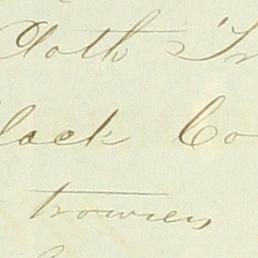 Cloth Tr
lack Co
trowsers